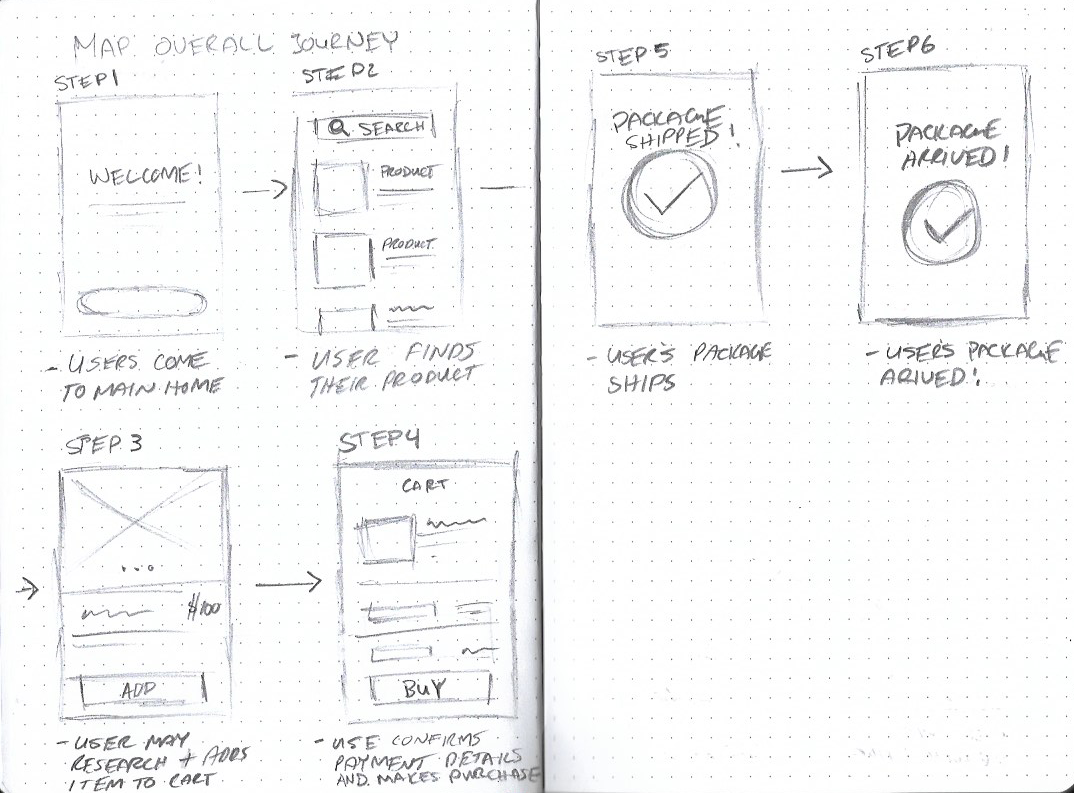 MAP OVERALL JOURNEY
STEP 1
WELCOME!
- USERS COME
TO MAIN HOME
STEP 2
SEARCH
PRODUCT
PRODUCT
- USER FINDS
THEIR PRODUCT
STEP 3
$100
ADD
- USER MAY
RESEARCH + ADDS
ITEM TO CART
STEP 4
CART
BUY
- USE CONFIRMS
PAYMENT DETAILS
AND MAKES PURCHASE
STEP 5
PACKAGE
SHIPPED!
- USER'S PACKAGE
SHIPS
STEP 6
PACKAGE
ARRIVED!
- USERS PACKAGE
ARIVED!